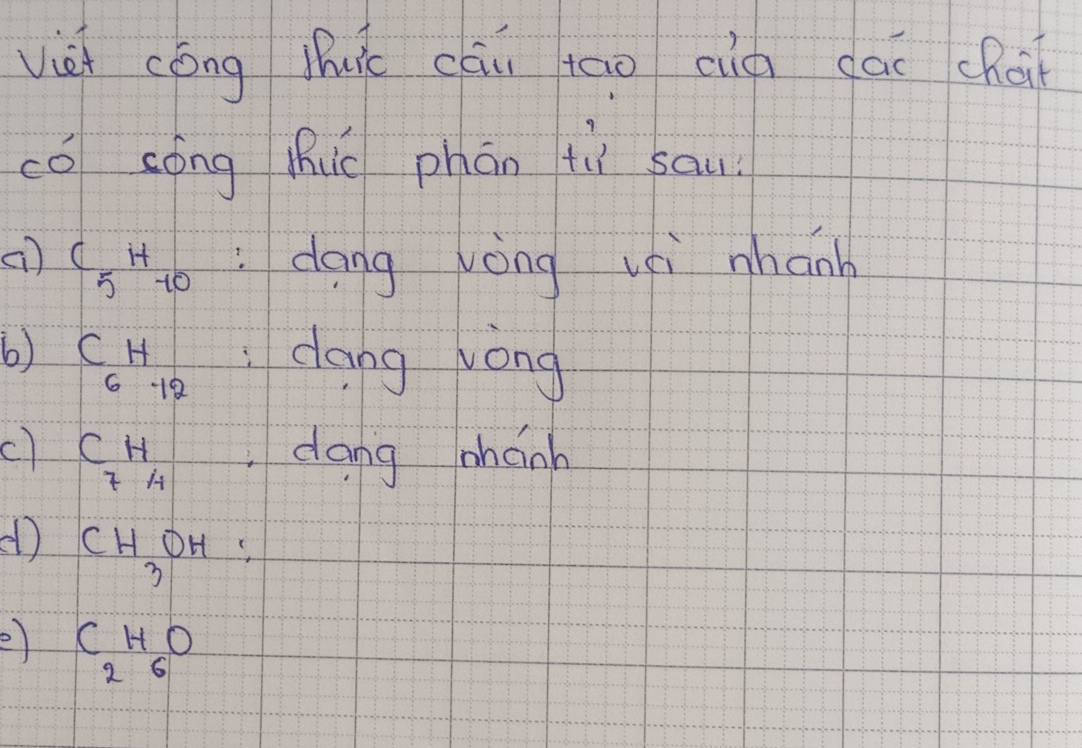 Viết công thức cấu tạo của các chất
có công thức phân tử sau:
a) C₅H₁₀ : dạng vòng và nhánh
b) C₆H₁₂ : dạng vòng
c) C₇H₁₄ : dạng nhánh
d) CH₃OH :
e) C₂H₆O